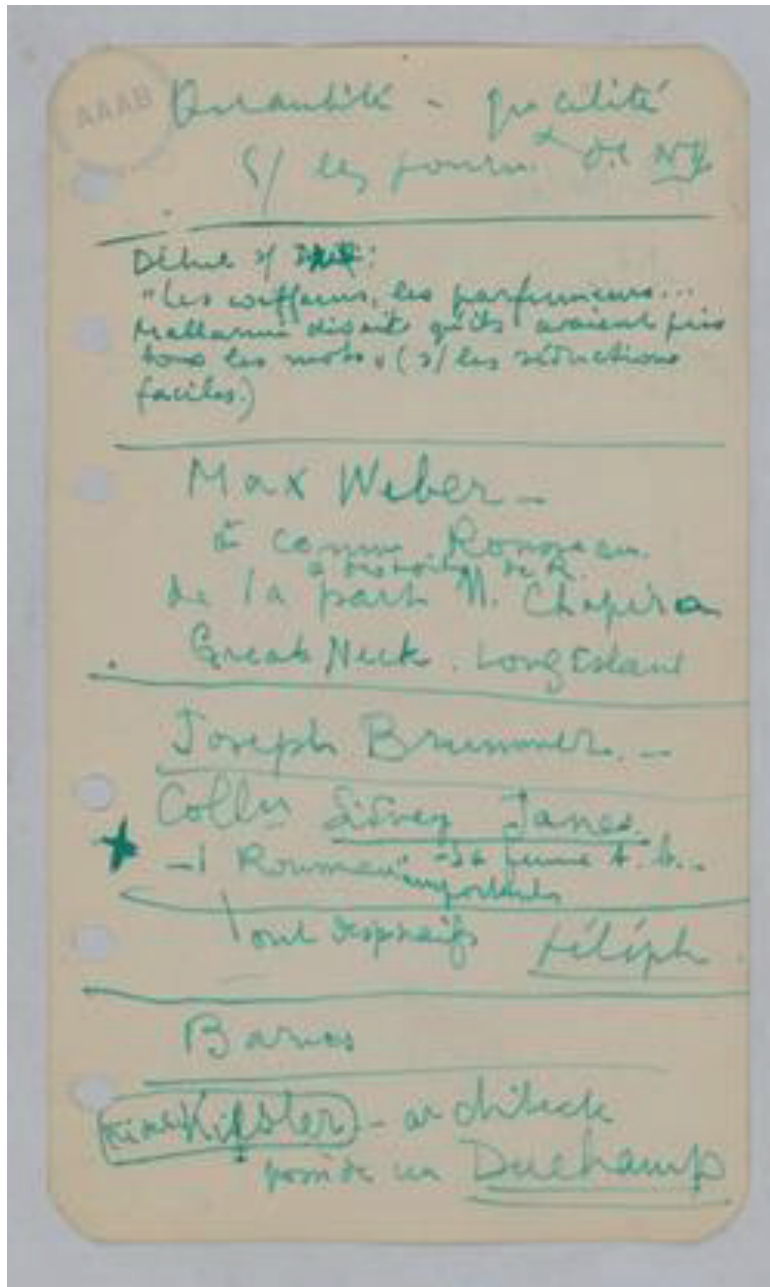 AAAB
Quantité - qualité
s/ les journx de NY
Début s/
"Les coiffeurs, les parfumeurs...
Mallarmé disait qu'ils avaient pris
tous les mots" (s/ les séductions
faciles.)
Max Weber -
a connu Rousseau
a des toiles de R.
de la part M. Chapiro
Great Neck. Long Island
Joseph Brummer. -
Coll Sidney Janes.
-1 Rousseau - sa femme t. b..
importants
téléph.
Barnes
Kiesler - architecte
possède un Duchamp